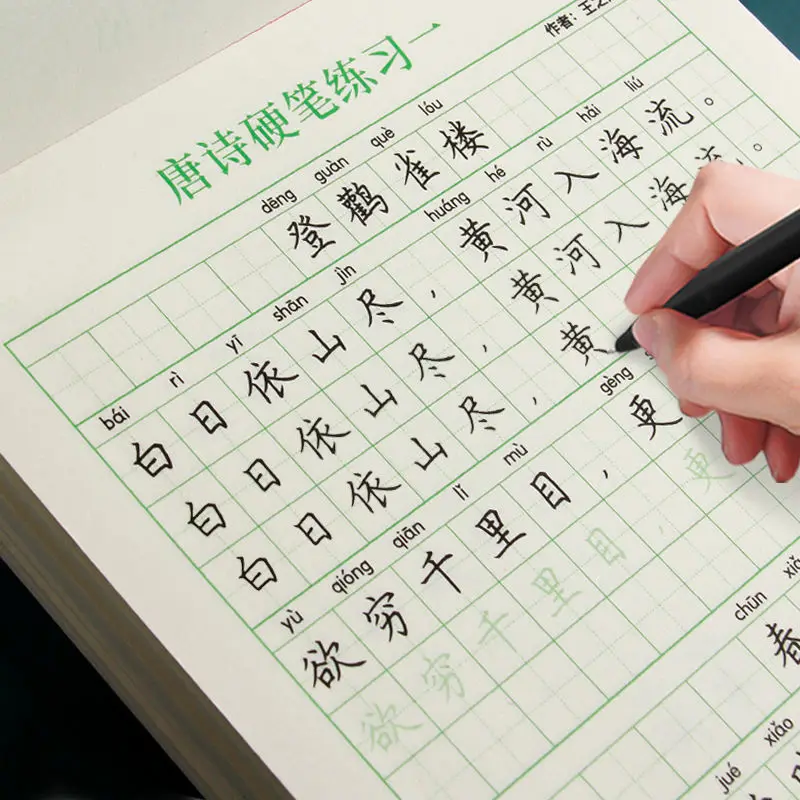 唐诗硬笔练习一
作者：王之
dēng guàn què lóu
登鹳雀楼
bái rì yī shān jìn huáng hé rù hǎi liú
白日依山尽，黄河入海流。
白日依山尽，黄河入海流。
白日依山尽，黄
yù qióng qiān lǐ mù gèng
欲穷千里目，更
欲穷千里目，更
chūn xiǎo
春
jué xiǎo